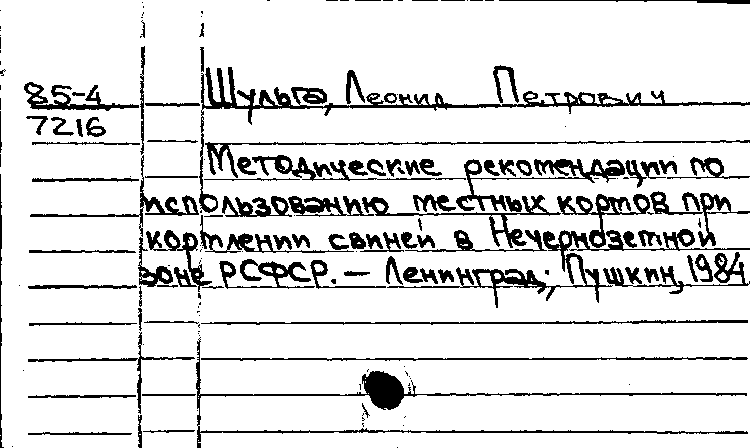 85-4
7216
Шульга, Леонид Петрович
Методические рекомендации по
использованию местных кормов при
кормлении свиней в Нечерноземной
зоне РСФСР. — Ленинград; Пушкин, 1984